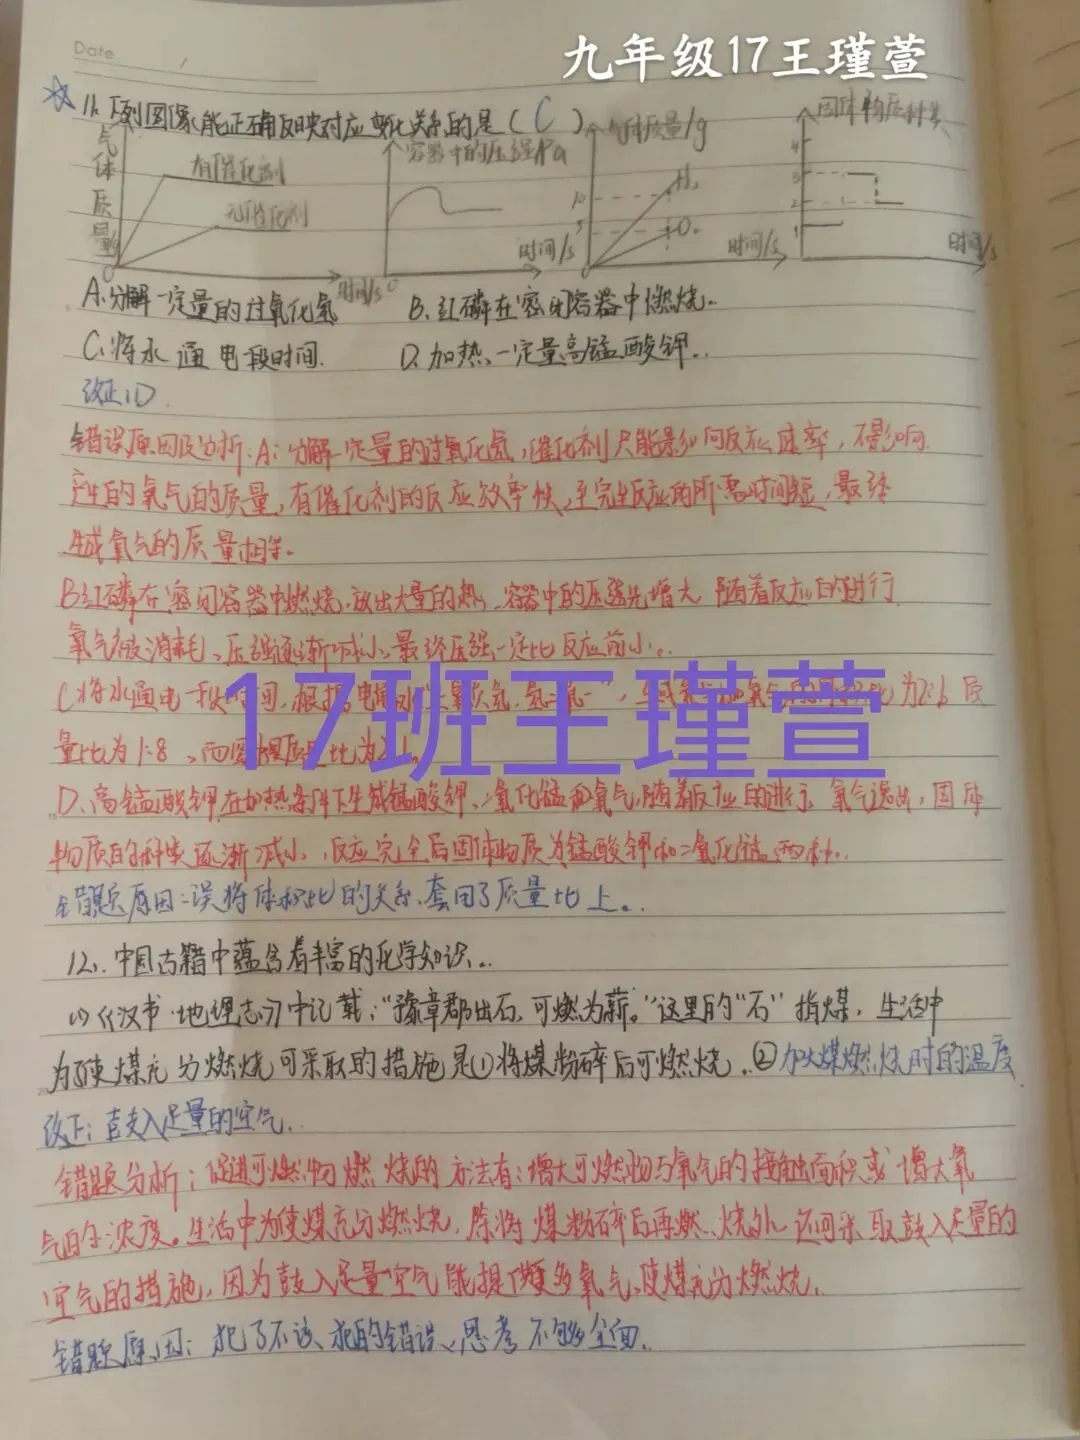 Date
九年级17王瑾萱
11、下列图像能正确反映对应变化关系的是(C)
气体质量/g 有催化剂 无催化剂 时间/s 0
容器中的压强/Pa 时间/s 0
气体质量/g 10 5 H₂ O₂ 时间/s 0
固体物质种类 4 3 2 1 时间/s
A.分解一定量的过氧化氢 B.红磷在密闭容器中燃烧..
C.将水通电一段时间. D.加热一定量高锰酸钾..
改正:D
错误原因及分析:A:分解一定量的过氧化氢,催化剂只能影响反应速率,不影响
产生的氧气的质量,有催化剂的反应效率快,至完全反应的所需时间短,最终
生成氧气的质量相等。
B红磷在密闭容器中燃烧.放出大量的热,容器中的压强先增大 随着反应的进行
氧气被消耗、压强逐渐减小、最终压强一定比反应前小。
C将水通电一段时间,根据电解水"
17班王瑾萱
量比为1:8、
D、高锰酸钾在加热条件下生成锰酸钾、二氧化锰和氧气,随着反应的进行、氧气逸出,固体
物质的种类逐渐减小,反应完全后固体物质为锰酸钾和二氧化锰两种..
错题原因:误将体积比的关系,套用了质量比上。
12、中国古籍中蕴含着丰富的化学知识..
(1)《汉书·地理志》中记载:"豫章郡出石,可燃为薪。"这里的"石"指煤,生活中
为了使煤充分燃烧可采取的措施是①将煤粉碎后可燃烧.②加大煤燃烧时的温度
改正:鼓入足量的空气.
错题分析:促进可燃物燃烧的方法有:增大可燃物与氧气的接触面积或增大氧
气的浓度。生活中为使煤充分燃烧,除将煤粉碎后再燃烧外,还可采取鼓入足量的
空气的措施,因为鼓入足量空气能提供更多氧气,使煤充分燃烧.
错题原因:犯了不该犯的错误、思考不够全面.